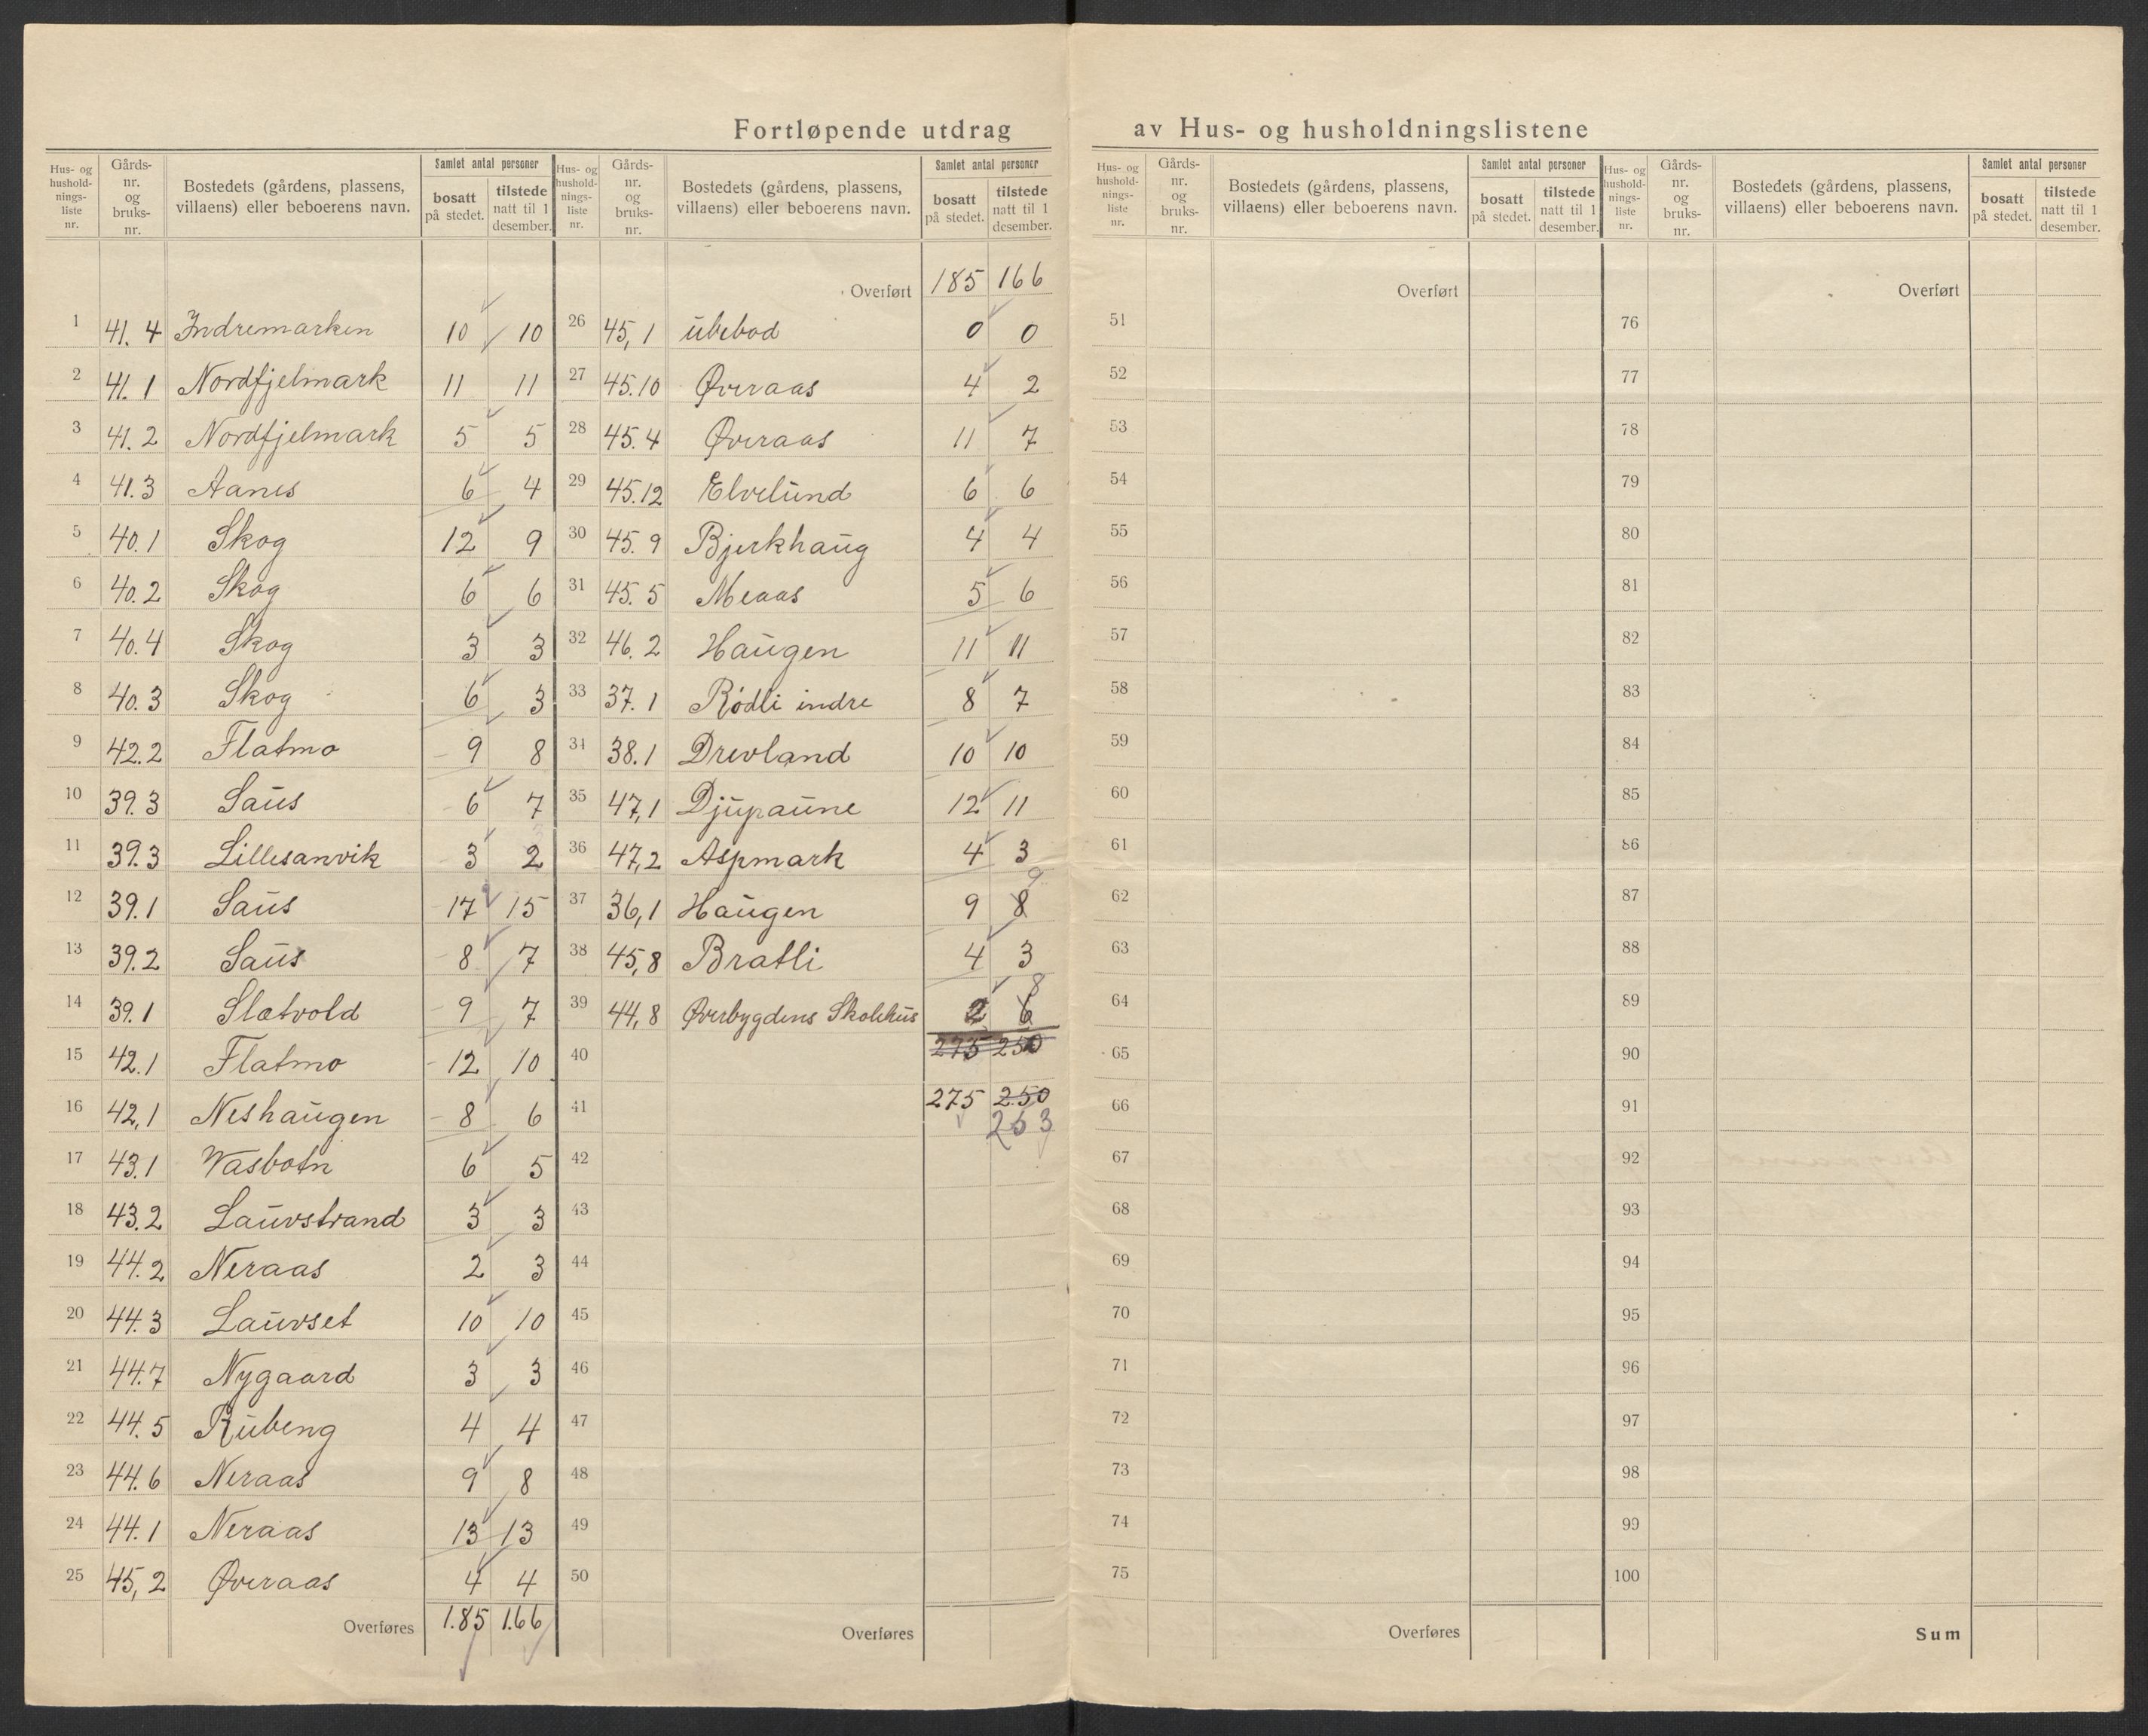 Fortløpende utdrag av Hus- og husholdningslistene
Hus- og husholdnings-liste nr. | Gårds-nr. og bruks-nr. | Bostedets (gårdens, plassens, villaens) eller beboerens navn. | Samlet antal personer bosatt på stedet. | tilstede natt til 1 desember.
1 41. 4 Indremarken 10 10
2 41. 1 Nordfjelmark 11 11
3 41. 2 Nordfjelmark 5 5
4 41. 3 Aanes 6 4
5 40. 1 Skog 12 9
6 40. 2 Skog 6 6
7 40. 4 Skog 3 3
8 40. 3 Skog 6 3
9 42. 2 Flatmo 9 8
10 39. 3 Saus 6 7
11 39. 3 Lillesanvik 3 2
12 39. 1 Saus 17 15
13 39. 2 Saus 8 7
14 39. 1 Slætvold 9 7
15 42. 1 Flatmo 12 10
16 42, 1 Neshaugen 8 6
17 43. 1 Vasbotn 6 5
18 43. 2 Lauvstrand 3 3
19 44. 2 Neraas 2 3
20 44. 3 Lauvset 10 10
21 44. 7 Nygaard 3 3
22 44. 5 Rubeng 4 4
23 44. 6 Neraas 9 8
24 44. 1 Neraas 13 13
25 45, 2 Øveraas 4 4
Overføres 1.85 1.66
Hus- og husholdnings-liste nr. | Gårds-nr. og bruks-nr. | Bostedets (gårdens, plassens, villaens) eller beboerens navn. | Samlet antal personer bosatt på stedet. | tilstede natt til 1 desember.
Overført 185 166
26 45, 1 ubebod 0 0
27 45. 10 Øveraas 4 2
28 45. 4 Øveraas 11 7
29 45. 12 Elvelund 6 6
30 45. 9 Bjerkhaug 4 4
31 45. 5 Meaas 5 6
32 46. 2 Haugen 11 11
33 37. 1 Rödli indre 8 7
34 38. 1 Drevland 10 10
35 47, 1 Djupaune 12 11
36 47, 2 Aspmark 4 3
37 36, 1 Haugen 9 8 9
38 45, 8 Bratli 4 3
39 44, 8 Øverbygdens Skolehus 2 6 8
40 275 250
41 275 250
253
42
43
44
45
46
47
48
49
50
Overføres
Hus- og husholdnings-liste nr. | Gårds-nr. og bruks-nr. | Bostedets (gårdens, plassens, villaens) eller beboerens navn. | Samlet antal personer bosatt på stedet. | tilstede natt til 1 desember.
Overført
51
52
53
54
55
56
57
58
59
60
61
62
63
64
65
66
67
68
69
70
71
72
73
74
75
Overføres
Hus- og husholdnings-liste nr. | Gårds-nr. og bruks-nr. | Bostedets (gårdens, plassens, villaens) eller beboerens navn. | Samlet antal personer bosatt på stedet. | tilstede natt til 1 desember.
Overført
76
77
78
79
80
81
82
83
84
85
86
87
88
89
90
91
92
93
94
95
96
97
98
99
100
Sum